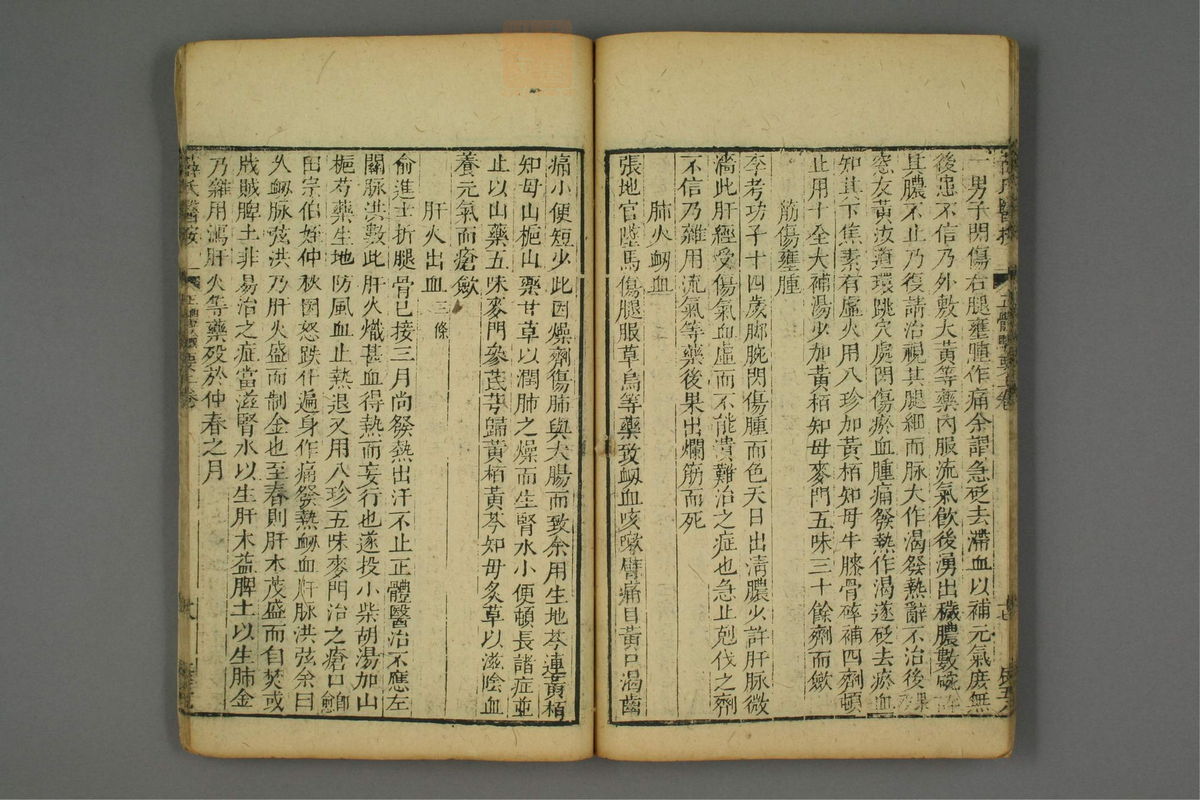 一男子閃傷右腿壅腫作痛余謂急砭去滯血以補元氣庶無
後患不信乃外敷大黃等藥內服流氣飲後湧出穢膿數碗許
其膿不止乃復請治視其腿細而脉大作渴發熱辭不治後果
窓友黃汝道環跳穴處閃傷瘀血腫痛發熱作渴遂砭去瘀血
知其下焦素有虛火用八珍加黃栢知母牛膝骨碎補四劑頓
止用十全大補湯少加黃栢知母麥門五味三十餘劑而斂
筋傷壅腫
李考功子十四歲脚腕閃傷腫而色天日出清膿少許肝脉微
濇此肝經受傷氣血虛而不能潰難治之症也急止剋伐之劑
不信乃雜用流氣等藥後果出爛筋而死
肺火衂血
張地官墜馬傷腿服草烏等藥致衂血咳嗽臂痛目黃口渴齒
痛小便短少此因燥劑傷肺與大腸而致余用生地芩連黃栢
知母山梔山藥甘草以潤肺之燥而生腎水小便頓長諸症並
止以山藥五味麥門參芪芎歸黃栢黃芩知母炙草以滋陰血
養元氣而瘡斂
肝火出血三條
俞進士折腿骨已接三月尚發熱出汗不止正體醫治不應左
關脉洪數此肝火熾甚血得熱而妄行也遂投小柴胡湯加山
梔芍藥生地防風血止熱退又用八珍五味麥門治之瘡口即愈
田宗伯姪仲秋因怒跌仆遍身作痛發熱衂血肝脉洪弦余曰
久衂脉弦洪乃肝火盛而制金也至春則肝木茂盛而自焚或
戕賊脾土非易治之症當滋腎水以生肝木益脾土以生肺金
乃雜用瀉肝火等藥殁於仲春之月
薛氏醫按